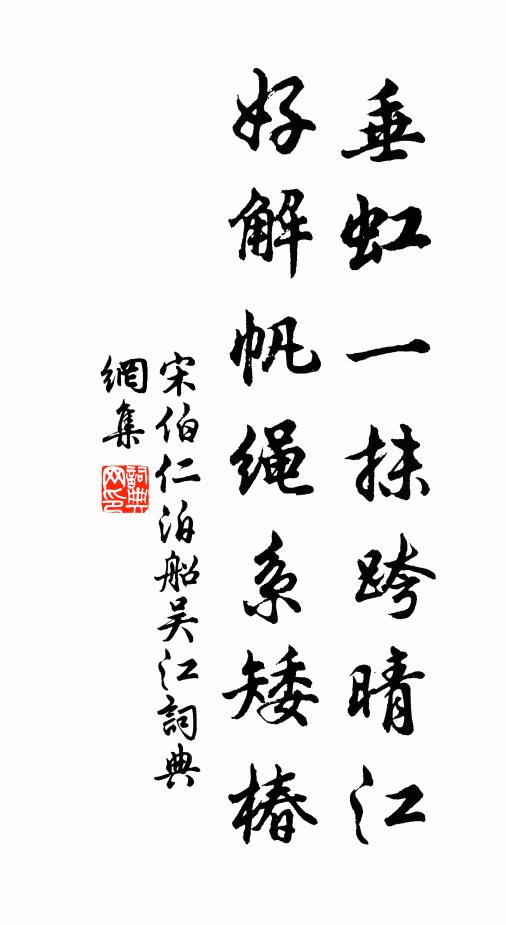 垂虹一抹跨晴江
好解帆绳系矮椿
宋伯仁泊船吴江词典
網集
詞典
网印